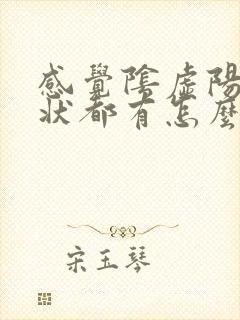 感覺陰虛陽
狀都有怎麼
宋玉琴